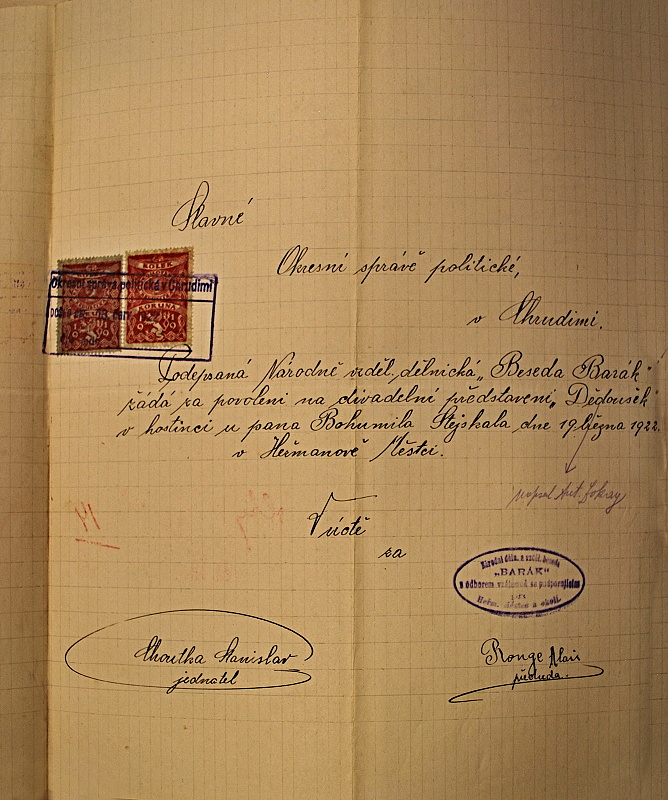 Slavné
Okresní správě politické,
v Chrudimi.
KOLEK
KORUNA
Okresní správa politická v Chrudimi
Podepsaná Národně vzděl. dělnická „Beseda Barák"
žádá za povolení na divadelní představení „Dědoušek"
v hostinci u pana Bohumila Stejskala dne 19. března 1922.
v Heřmanově Městci.
napsal Ant.
V úctě
za
Národní děln. a vzděl. beseda
„BARÁK"
s odborem vzájemně se podporujícím
pro
Heřm. Městec a okolí.
Choutka Stanislav
jednatel
Ronge Alois
předseda.